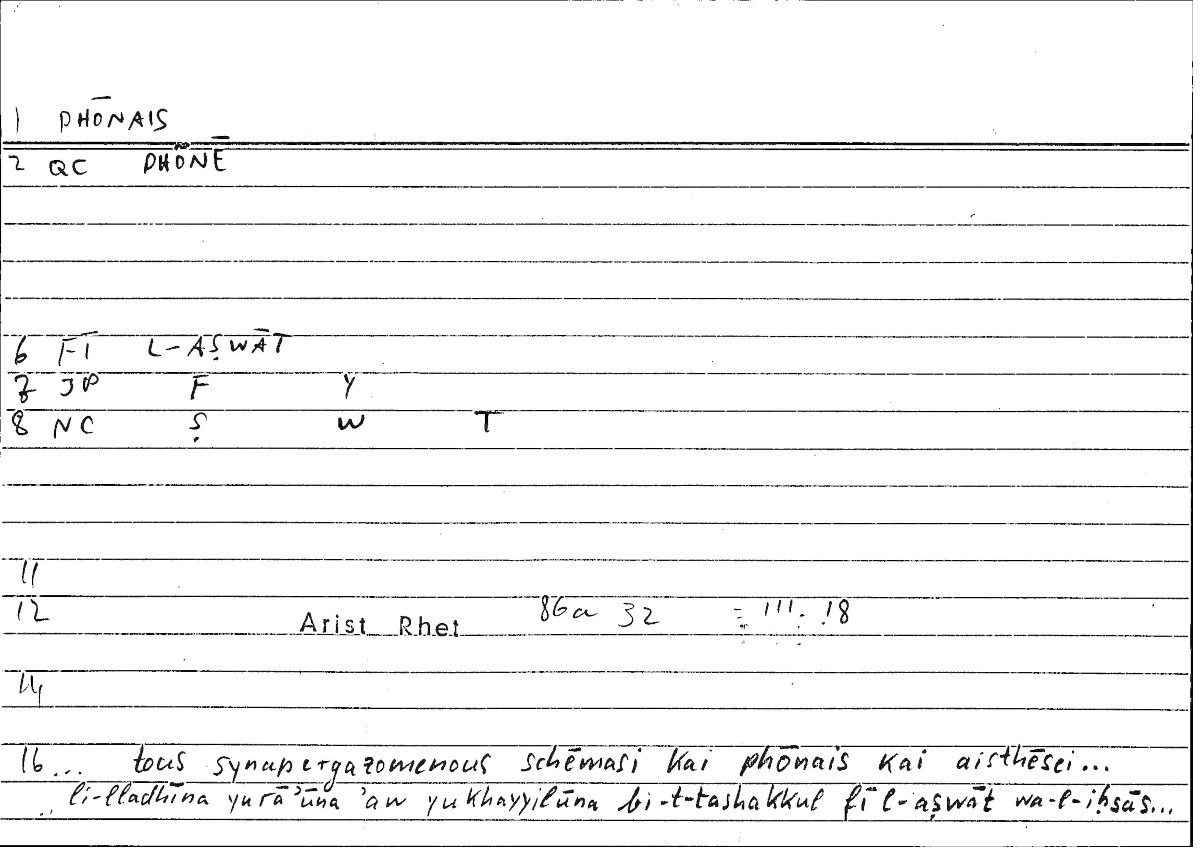 1 PHŌNAIS
2 QC PHŌNĒ
6 FĪ L-AṢWĀT
7 JP F Y
8 NC Ṣ W T
11
12 Arist Rhet 86a 32 = 111. 18
14
16 ... tous synapergazomenous schēmasi kai phōnais kai aisthēsei...
li-lladhīna yurā'ūna 'aw yukhayyilūna bi-t-tashakkul fī l-aṣwāt wa-l-iḥsās...